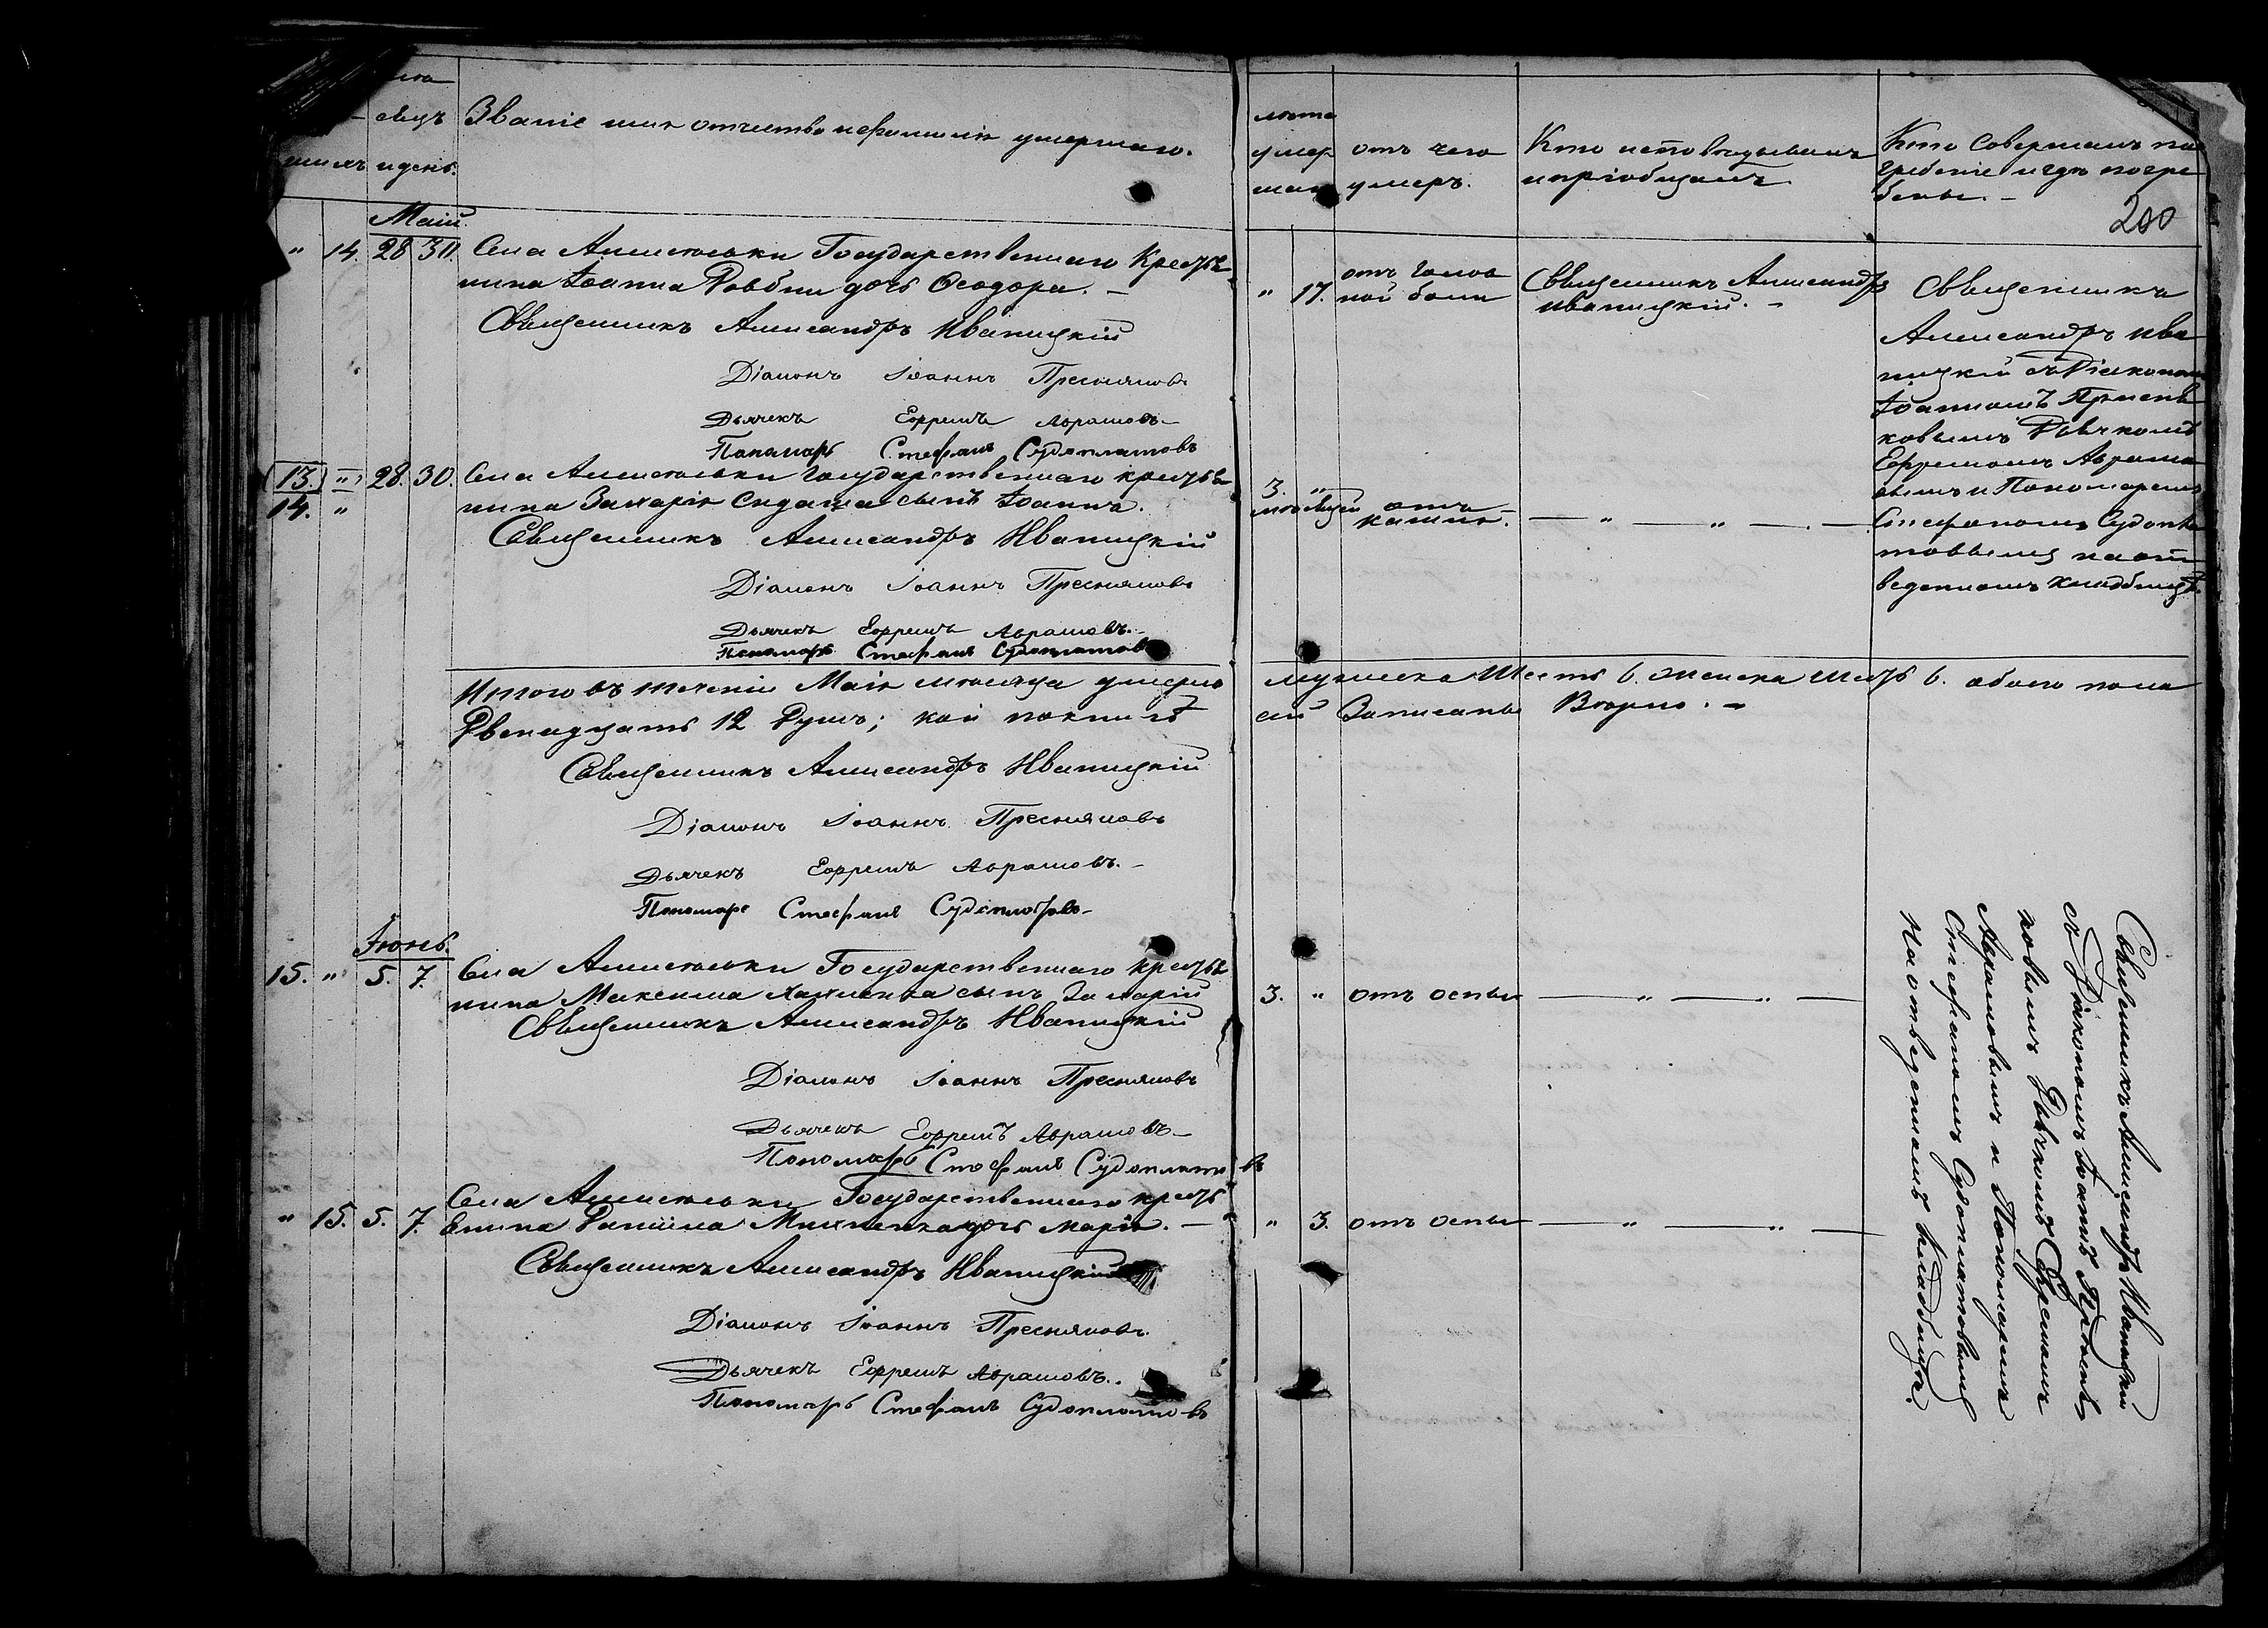 сяцъ
и день.
Званіе имя отчество и фамилія умершаго.
Маій
" 14. 28 30 Села Алексѣевки Государственнаго Крестья
нина Іоанна дочь Ѳеодора. —
Священникъ Александръ Иваницкій
Діаконъ Іоаннъ Пресняковъ
Дьячекъ Ефремъ Аврамовъ
Пономарь Стефанъ Судоплатовъ
13. " 28. 30. Села Алексѣевки Государственнаго крестья
14. " нина Захарія сынъ Іоаннъ.
Священникъ Александръ Иваницкій
Діаконъ Іоаннъ Пресняковъ
Дьячекъ Ефремъ Аврамовъ.
Пономарь Стефанъ Судоплатовъ
Итого въ теченіи Маія мѣсяца умерло
Двенадцать 12 Душъ; кои по книгѣ
Священникъ Александръ Иваницкій
Діаконъ Іоаннъ Пресняковъ
Дьячекъ Ефремъ Аврамовъ.
Пономарь Стефанъ Судоплатовъ
Іюнь.
15. " 5. 7. Села Алексѣевки Государственнаго крестья
нина Максима сынъ Захарій
Священникъ Александръ Иваницкій
Діаконъ Іоаннъ Пресняковъ
Дьячекъ Ефремъ Аврамовъ
Пономарь Стефанъ Судоплатовъ
Села Алексѣевки Государственнаго крестья
" 15. 5. 7. нина Даніила Михненка дочь Марія. —
Священникъ Александръ Иваницкій
Діаконъ Іоаннъ Пресняковъ
Дьячекъ Ефремъ Аврамовъ.
Пономарь Стефанъ Судоплатовъ
лѣта
умер
шаго
отъ чего
умеръ.
Кто исповѣдывалъ
и пріобщалъ.
Кто совершалъ по
гребеніе и гдѣ погре
бены. —
200
" 17. отъ голов
ной боли
Священникъ Александръ
Иваницкій. —
Священникъ
Александръ Ива
ницкій съ Діакономъ
Іоанномъ Пресня
ковымъ Дьячкомъ
Ефремомъ Аврамо
вымъ и Пономаремъ
Стефаномъ Судопла
товымъ на от
веденномъ кладбищѣ.
3. "
мѣсяцей отъ
кашля. — " — " —
мужеска Шесть 6. женска шесть 6. обоего пола
сей Записаны Вѣрно. —
3. " отъ оспы — " — " —
" 3. отъ оспы — " — " —
Священникъ Александръ Иваницкій
съ Діакономъ Іоанномъ Пресня
ковымъ Дьячкомъ Ефремомъ
Аврамовымъ и Пономаремъ
Стефаномъ Судоплатовымъ
на отведенномъ кладбищѣ.